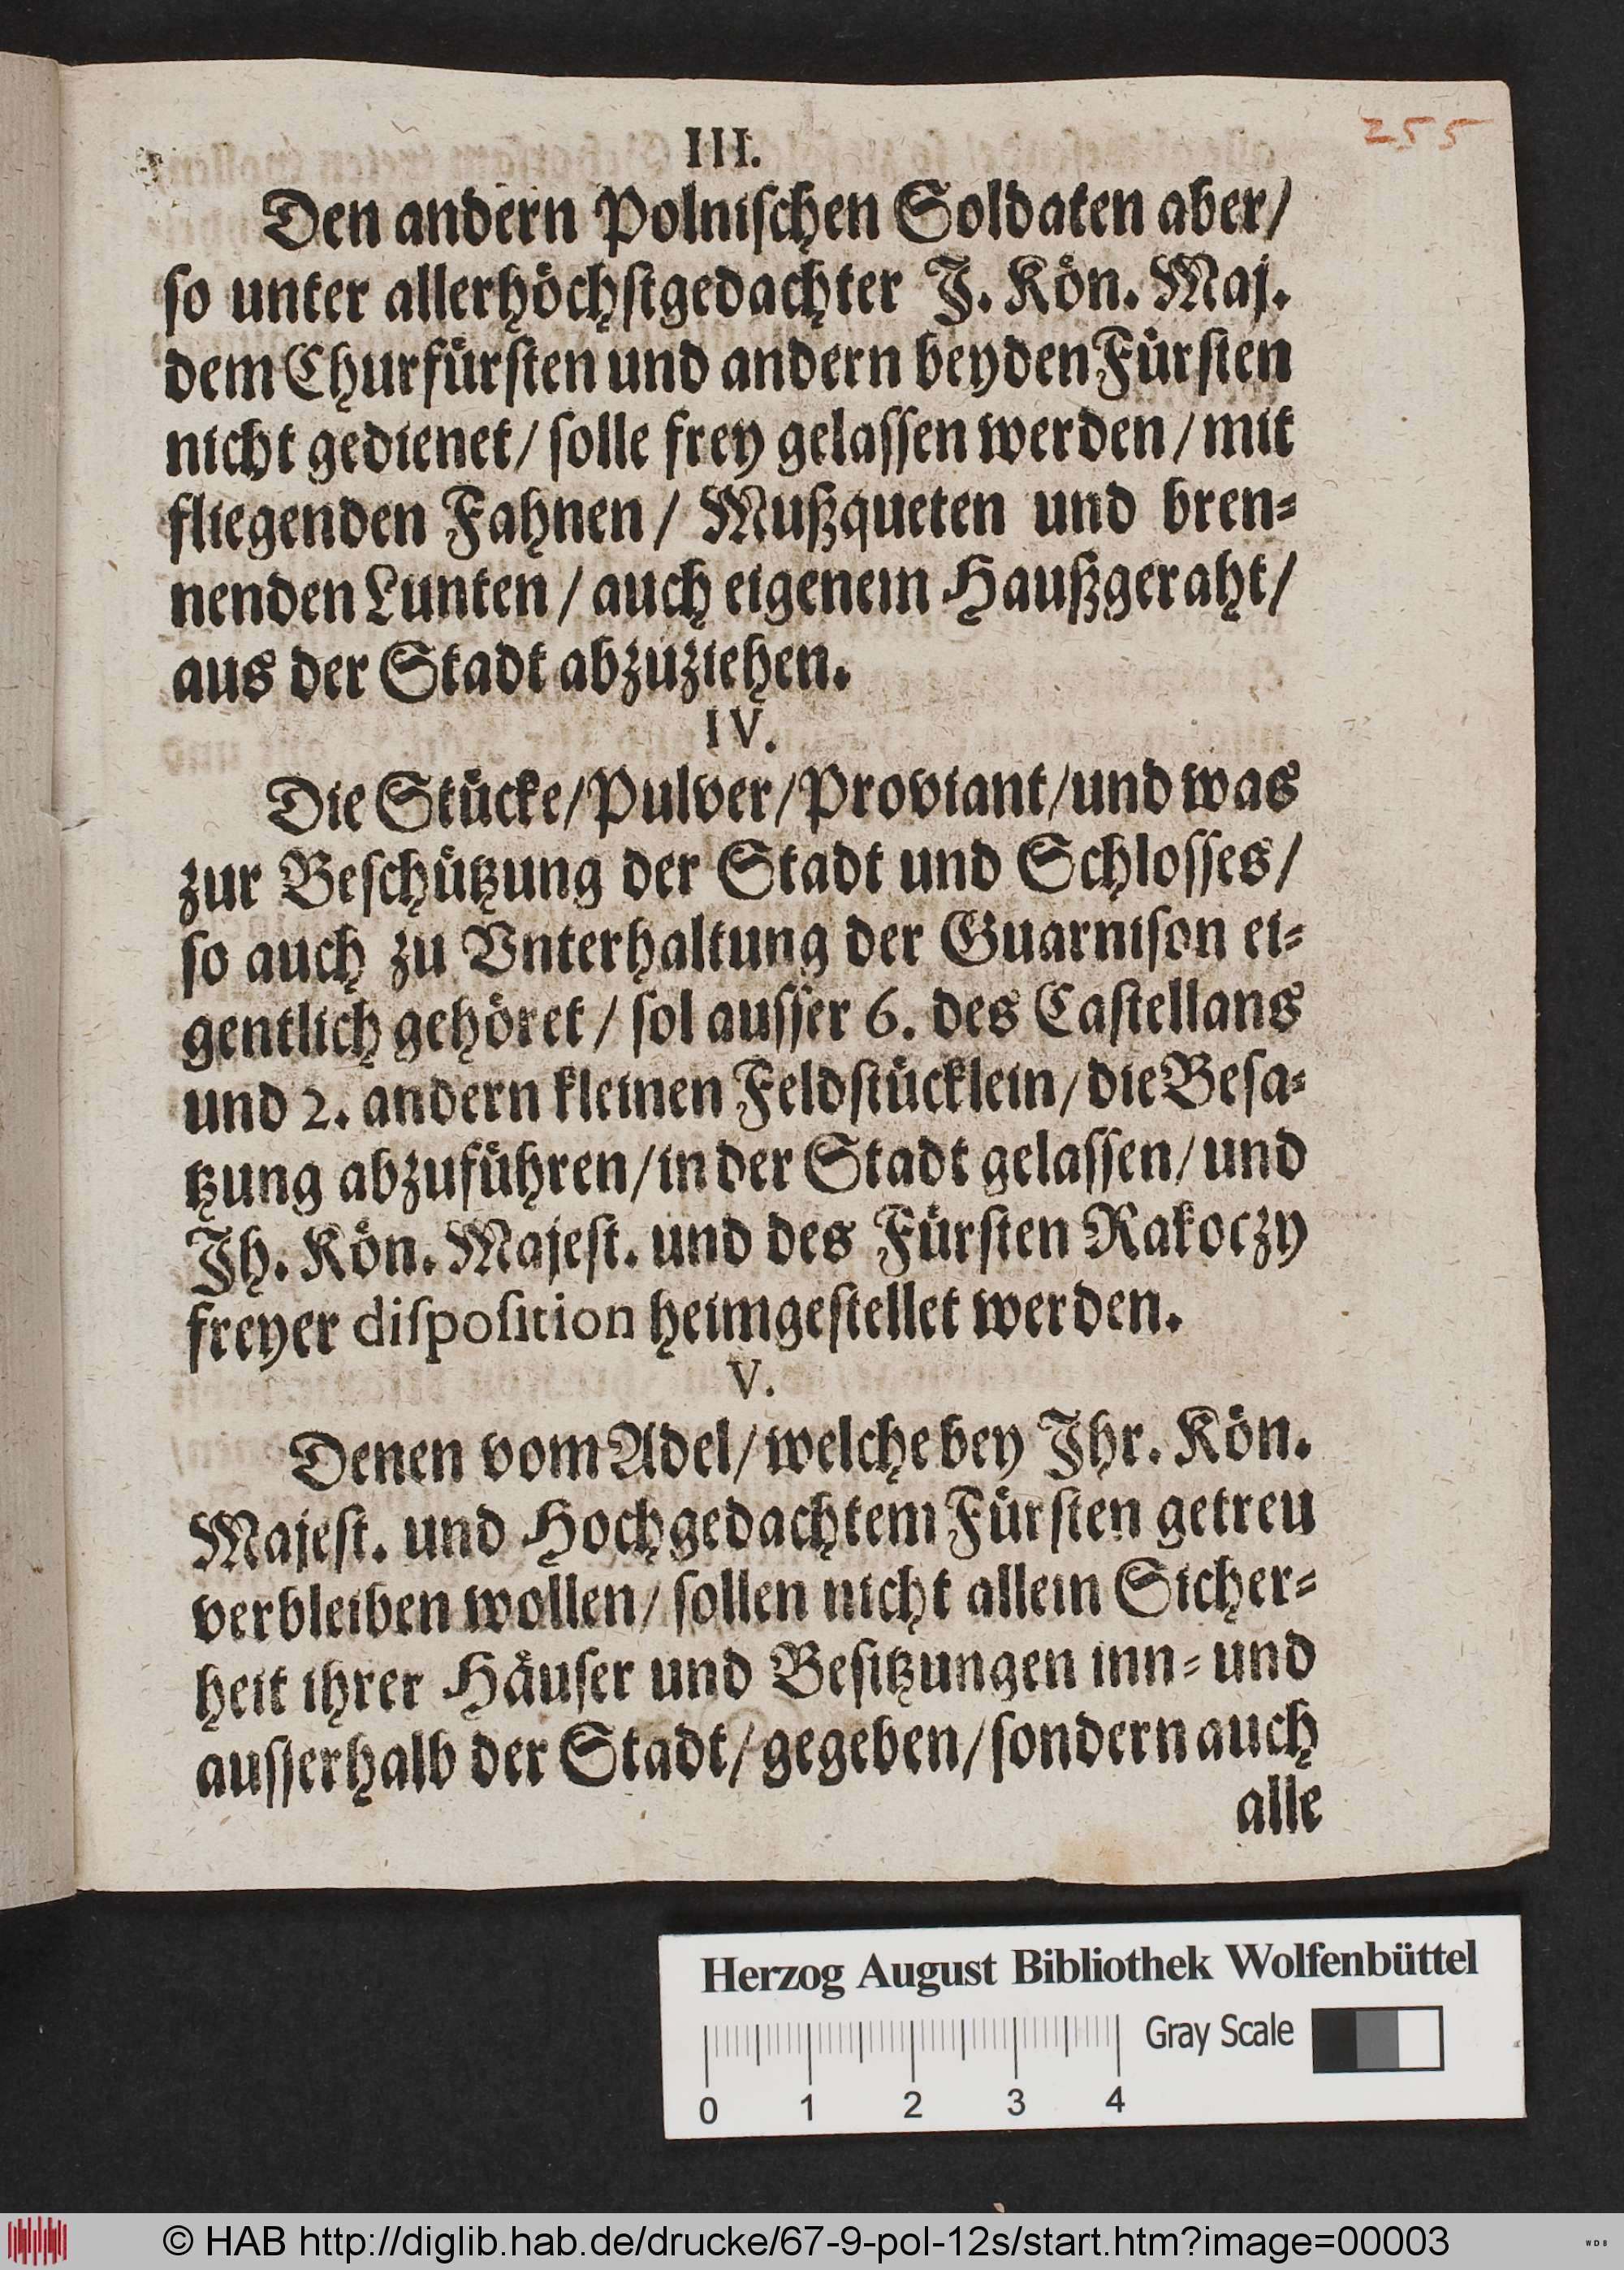 255
III.
Den andern Polniſchen Soldaten aber/
ſo unter allerhöchſtgedachter J. Kön. Maj.
dem Churfürſten und andern beyden Fürſten
nicht gedienet/ ſolle frey gelaſſen werden/ mit
fliegenden Fahnen/ Mußqueten und bren⸗
nenden Lunten/ auch eigenem Haußgeraht/
aus der Stadt abzuziehen.
IV.
Die Stücke/Pulver/Proviant/und was
zur Beſchützung der Stadt und Schloſſes/
ſo auch zu Vnterhaltung der Guarniſon ei⸗
gentlich gehöret/ ſol auſſer 6. des Caſtellans
und 2. andern kleinen Feldſtücklein/ die Beſa⸗
tzung abzuführen/in der Stadt gelaſſen/ und
Jh. Kön. Majeſt. und des Fürſten Rakoczy
freyer diſpoſition heimgeſtellet werden.
V.
Denen vom Adel/ welche bey Jhr. Kön.
Majeſt. und Hochgedachtem Fürſten getreu
verbleiben wollen/ ſollen nicht allein Sicher⸗
heit ihrer Häuſer und Beſitzungen inn⸗ und
auſſerhalb der Stadt/ gegeben/ ſondern auch
alle
Herzog August Bibliothek Wolfenbüttel
Gray Scale
0 1 2 3 4
© HAB http://diglib.hab.de/drucke/67-9-pol-12s/start.htm?image=00003
WDB